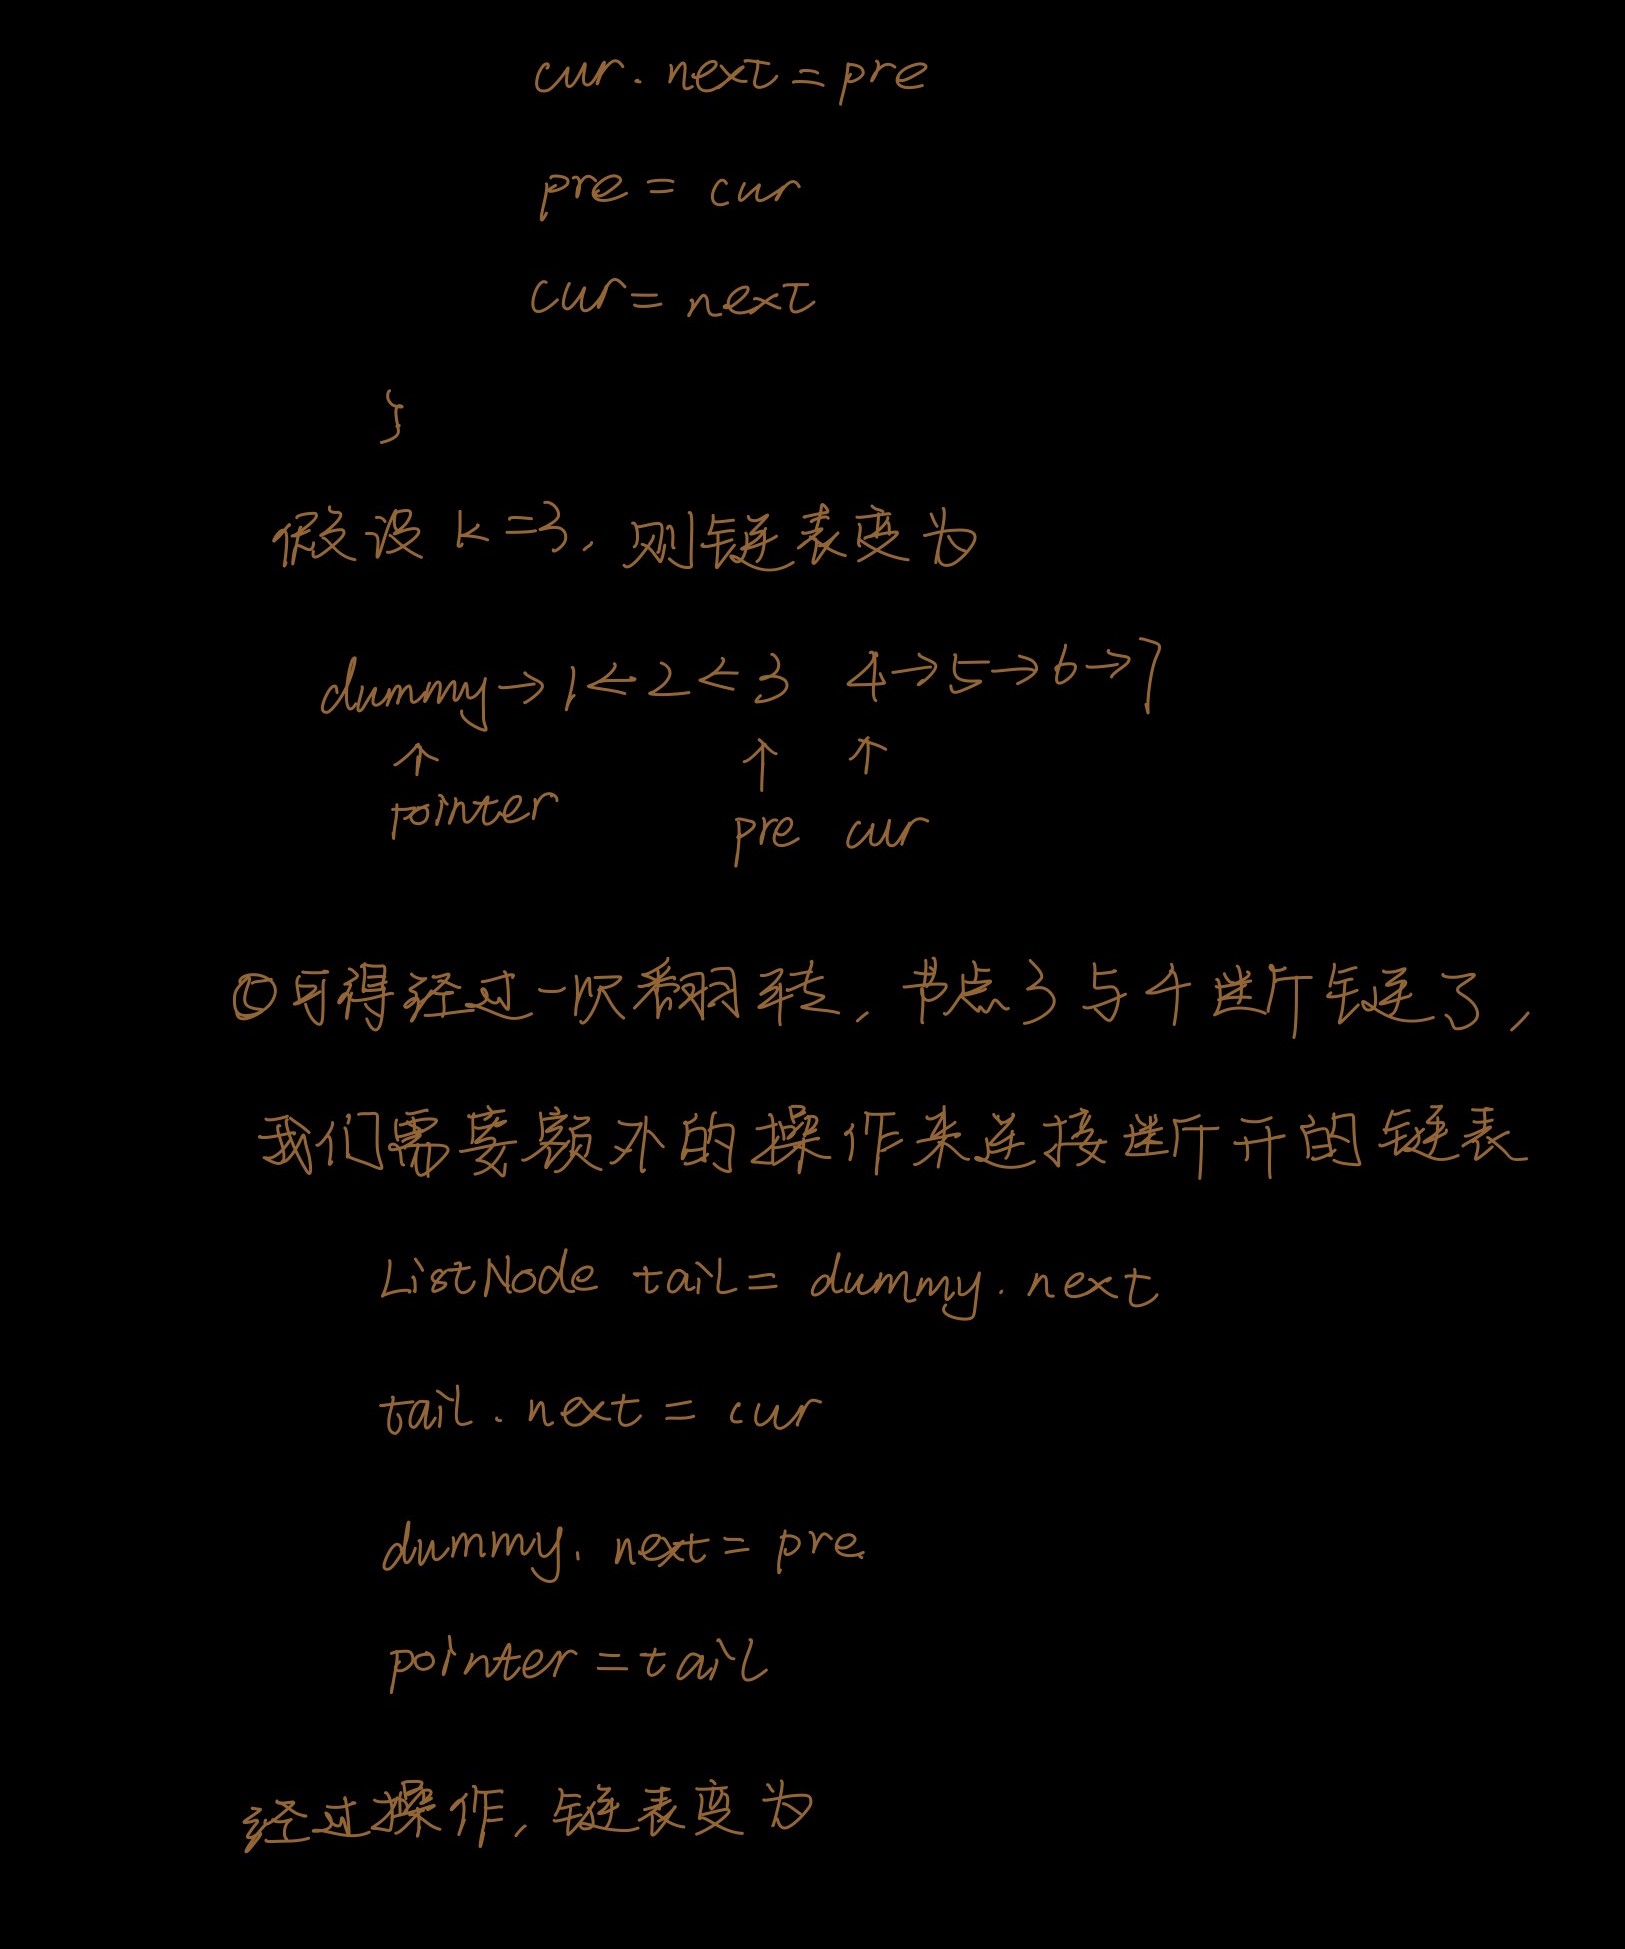 cur. next = pre
pre = cur
cur = next
}
假设 k=3, 则链表变为
dummy→1←2←3 4→5→6→7
↑ ↑ ↑
pointer pre cur
可得经过一次翻转, 节点3与4断链了,
我们需要额外的操作来连接断开的链表
ListNode tail = dummy. next
tail. next = cur
dummy. next = pre
pointer = tail
经过操作, 链表变为